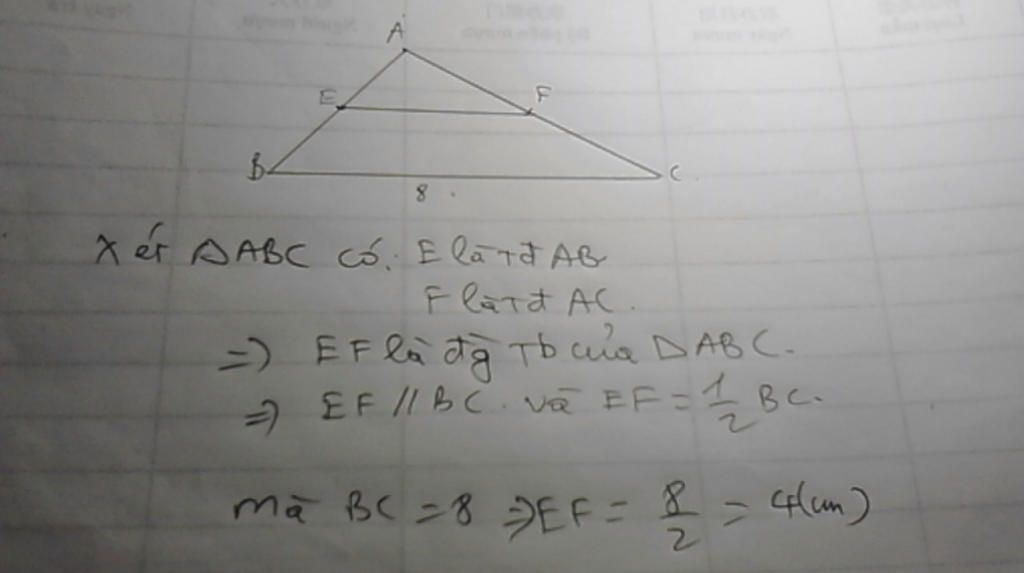 A
E F
B C
8
Xét ΔABC có: E là Tđ AB
F là Tđ AC.
=> EF là đg Tb của ΔABC.
=> EF // BC. và EF = 1/2 BC.
mà BC = 8 => EF = 8/2 = 4(cm)